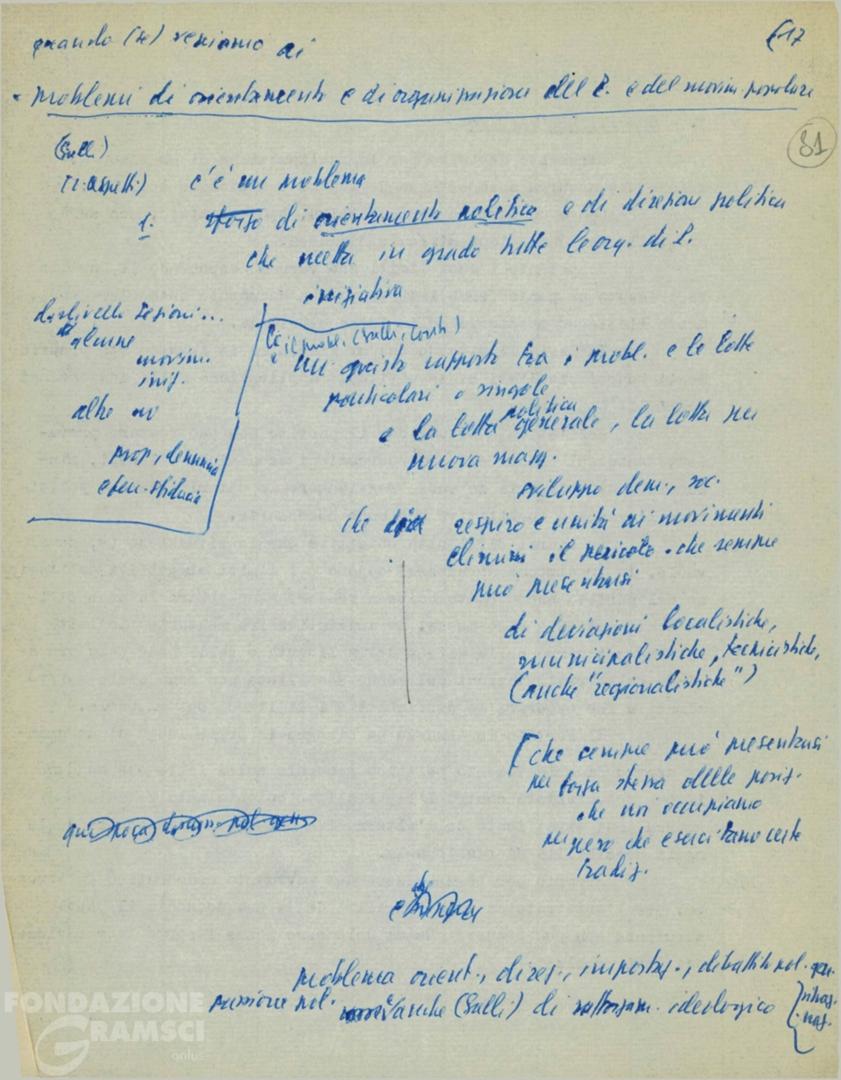 quando (se) veniamo ai
17
problemi di orientamento e di organizzazione del P. e del movim. popolare
81
(Galli)
(2 aspetti) c'è un problema
1. sforzo di orientamento politico e di direzione politica
che metta in grado tutte le org. di P.
iniziativa
dislivello sezioni...
alcune
movim.
iniz.
altre no
prop., denuncia
e
il probl. (Galli, Conti)
un giusto rapporto tra i probl. e le lotte
particolari e singole
e la lotta politica generale, la lotta per
nuova magg.
sviluppo dem., soc.
che dia respiro e unità ai movimenti
elimini il pericolo che sempre
può presentarsi
di deviazioni localistiche,
municipalistiche, tecnicistiche,
(anche "regionalistiche")
[che sempre può presentarsi
per forza stessa delle posiz.
che noi occupiamo
per peso che esercitano certe
tradiz.
problema orient., direz., impostaz., dibattito pol. gen.
passione pol. anche (Galli) di rafforzam. ideologico
FONDAZIONE
GRAMSCI
onlus